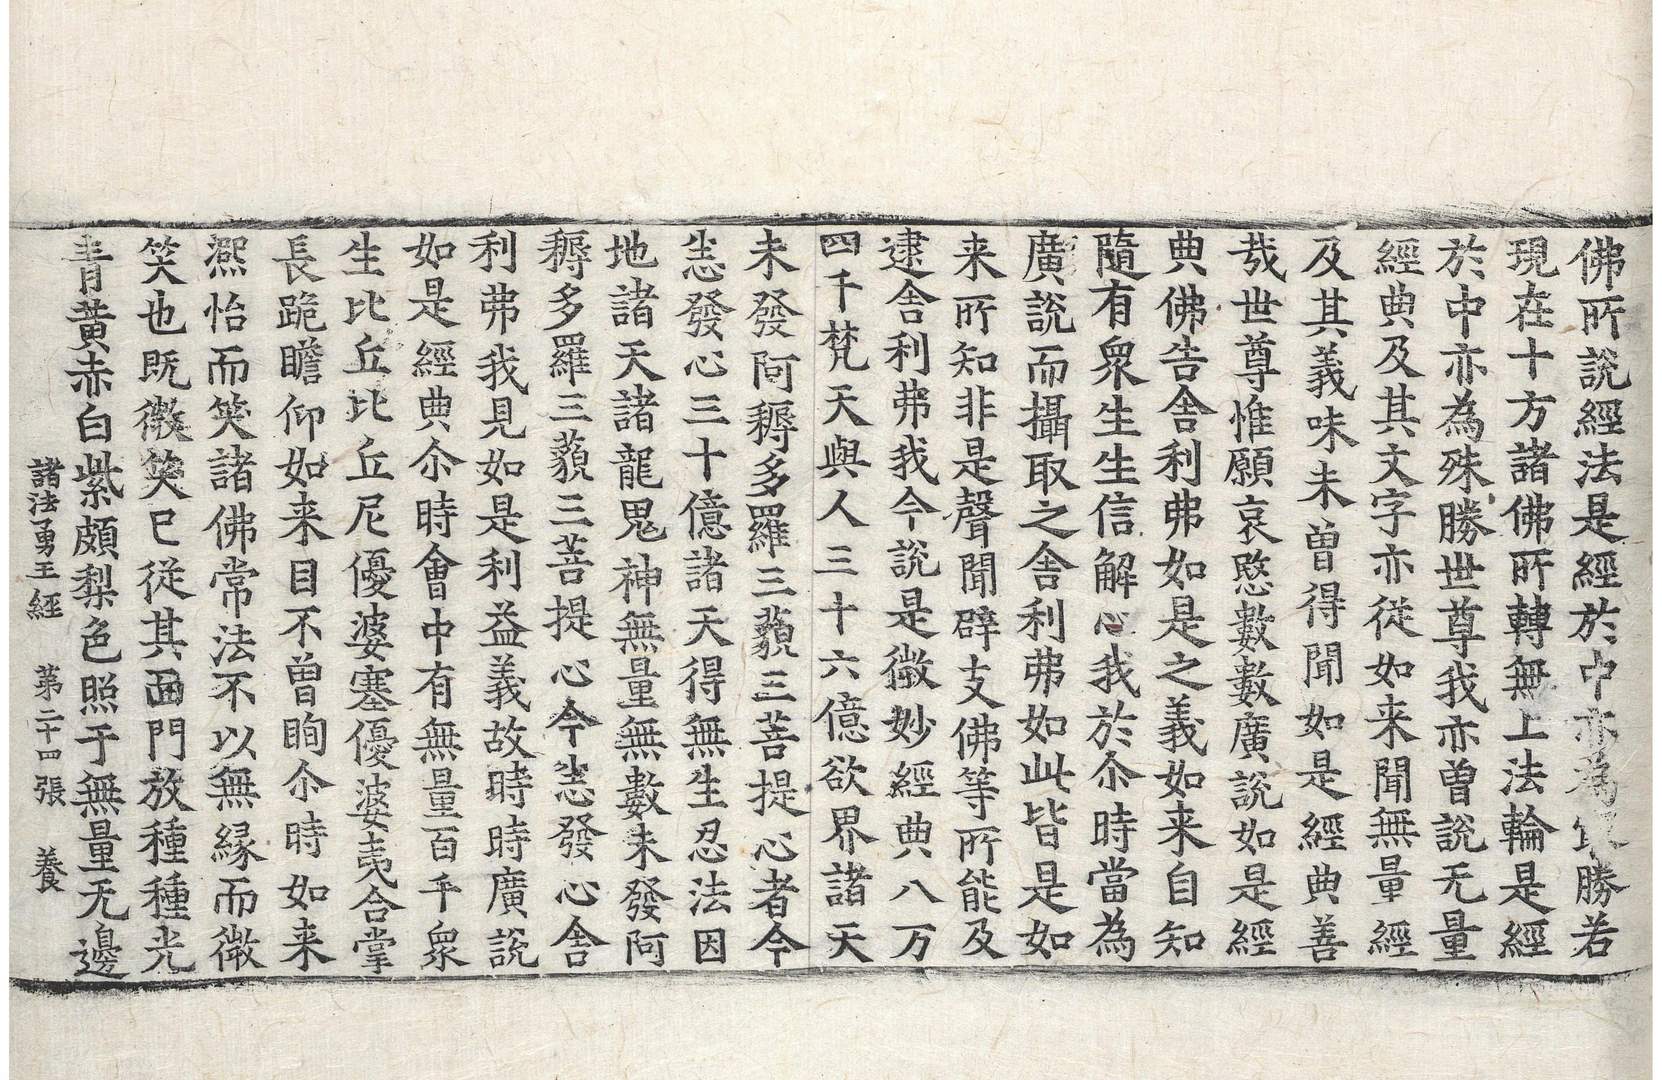 佛所說經法是經於中亦為最勝若
現在十方諸佛所轉無上法輪是經
於中亦為殊勝世尊我亦曾說无量
經典及其文字亦從如来聞無量經
及其義味未曾得聞如是經典善
哉世尊惟願哀愍數數廣說如是經
典佛告舍利弗如是之義如来自知
隨有衆生生信解心我於尒時當為
廣說而攝取之舍利弗如此皆是如
来所知非是聲聞辟支佛等所能及
逮舍利弗我今說是微妙經典八万
四千梵天與人三十六億欲界諸天
未發阿耨多羅三藐三菩提心者今
悉發心三十億諸天得無生忍法因
地諸天諸龍鬼神無量無數未發阿
耨多羅三藐三菩提心今悉發心舍
利弗我見如是利益義故時時廣說
如是經典尒時會中有無量百千衆
生比丘比丘尼優婆塞優婆夷合掌
長跪瞻仰如来目不曾眴尒時如来
凞怡而笑諸佛常法不以無縁而微
笑也既微笑已從其面門放種種光
青黄赤白紫頗梨色照于無量无邊
諸法勇王經 第二十四張 養